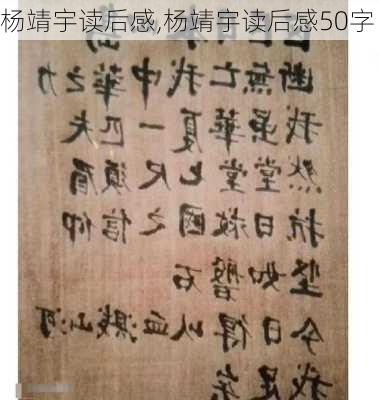 杨靖宇读后感,杨靖宇读后感50字
斷無亡我中華之力
我虽華夏一匹夫
然堂堂七尺須眉
抗日救國之信仰
坚如磐石
今日得以血濺山河
我足矣